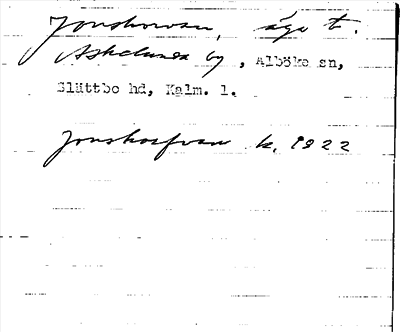 Jonshorvan, äga t.
Askelunda by, Alböke sn,
Slättbo hd, Kalm. l.
Jonshorfvan k. 1922